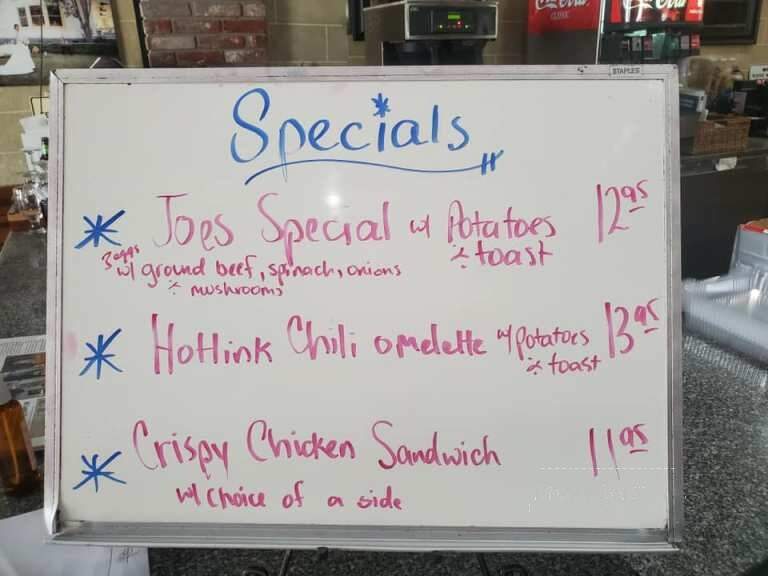 Coca-Cola
CLASSIC
STAPLES
Specials
* Joes Special w/ Potatoes 12 95
& toast
3 eggs
w/ ground beef, spinach, onions
& mushrooms
* Hotlink Chili omelette w/ potatoes 13 95
& toast
* Crispy Chicken Sandwich 11 95
w/ choice of a side